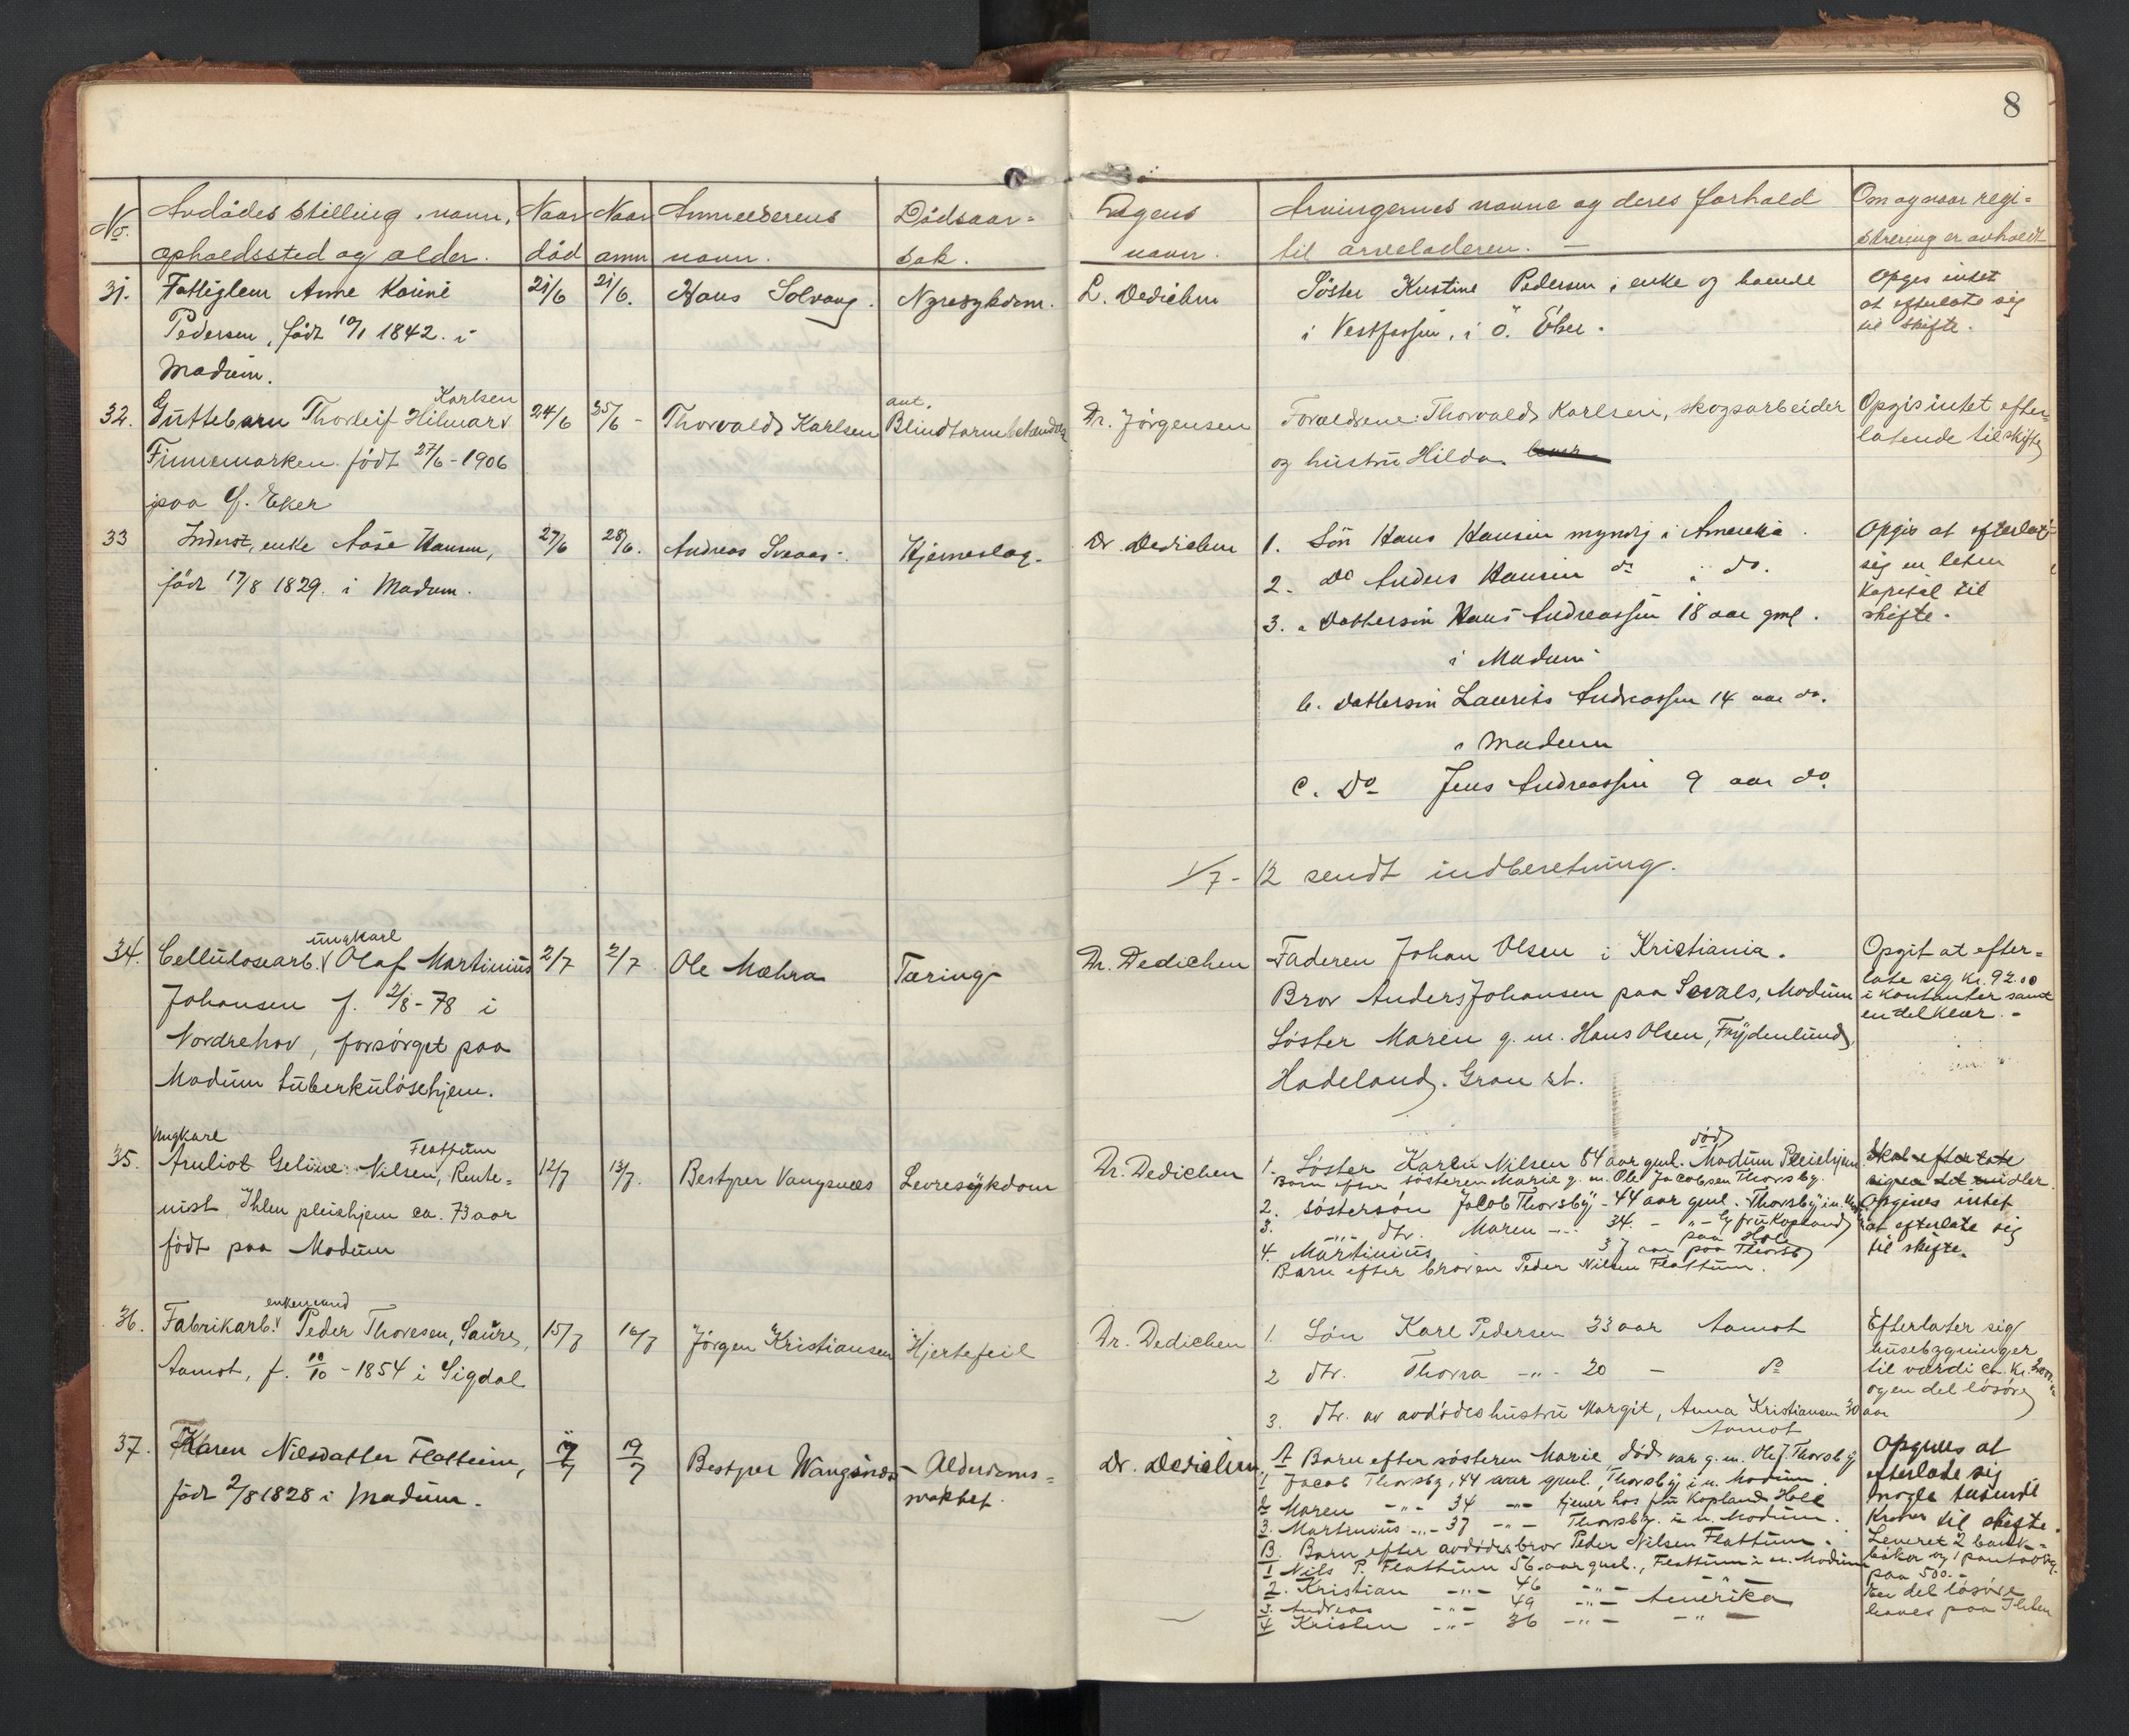 8
No. Avdødes stilling, navn, opholdssted og alder. Naar død Naar anm Anmelderens navn. Dødsaarsak. Lægens navn. Arvingernes navne og deres forhold til arveladeren. — Om og naar registrering er avholdt
31. Fattiglem Anne Karine 21/6 21/6. Hans Solvang. Nyresykdom. L. Dedichen
Pedersen, født 10/1 1842. i
Modum.
Søster Kristine Pedersen, enke og boende
i Vestfossen, i Ø. Eker.
Opges intet
at efterlate sig
til skifte.
Karlsen
32. Guttebarn Thorleif Hilmar 24/6 25/6 - Thorvald Karlsen
Finnemarken født 27/6-1906
paa Ø. Eker
ant.
Blindtarmbetændelse
Dr. Jørgensen
Forældrene: Thorvald Karlsen, skogsarbeider
og hustru Hilda
Opgis intet efter-
latende til skifte
33 Inderst, enke Aase Hansen, 27/6 28/6. Andreas Svaas. Hjerneslag. Dr. Dedichen
født 17/8 1829. i Modum.
1. Søn Hans Hansen myndig i Amerika.
2. Do Anders Hansen do i do.
3. a Dattersøn Hans Andreassen 18 aar gml.
i Modum
b. Dattersøn Laurits Andreassen 14 aar do.
i Modum
c. Do Jens Andreassen 9 aar do.
Opgis at efterlate
sig en liten
kapital til
skifte.
1/7-12 sendt indberetning.
ungkarl
34. Cellulosearb. Olaf Martinius 2/7 2/7 Ole Mæhra Tæring Dr. Dedichen
Johansen f. 2/8-78 i
Nordrehov, forsørget paa
Modum tuberkulosehjem.
Faderen Johan Olsen i Kristiania.
Bror Anders Johansen paa Modum
Søster Maren g. m. Hans Olsen, Frydenlund,
Hadeland. Gran st.
Opgit at efter-
late sig kr. 92.00
i kontanter samt
endel klær. -
Ungkarl
Flattum
35. Nilsen, Rente- 12/7 13/7. Bestyrer Vangsnes Levresykdom Dr. Dedichen
nist Ihlen pleiehjem ca. 73 aar
født paa Modum
død
1. Søster Karen Nilsen 84 aar gml. Modum Pleiehjem
Barn efter søsteren Marie g. m. Ole Jacobsen Thorsby.
2. søstersøn Jacob Thorsby - 44 aar gml. Thorsby i n. Modum
3. -"- dtr. Maren -"- 34. - "- frk Kopland
paa Hole
4. Martinius 37 aar paa Thorsby
Barn efter broren Peder Nilsen Flattum.
Skal efterlate
sig en del midler.
Opgives intet
at efterlate sig
til skifte.
enkemand
36. Fabrikarb. Peder Thoresen, Saure, 15/7 16/7 Jørgen Kristiansen Hjertefeil Dr. Dedichen
Aamot, f. 10/10-1854 i Sigdal
1. Søn Karl Pedersen 33 aar Aamot
2 dtr. Thorra -"- 20 - do
3. dtr. av avdødes hustru Margit, Anna Kristiansen 30 aar
Aamot
Efterlater sig
husebygninger
til værdi ca. kr.
og en del løsøre
37. Karen Nilsdatter Flattum, 19/7 Bestyrer Wangsnes Alderdoms-
født 2/8 1828 i Modum. svakhet. Dr. Dedichen
A Barn efter søsteren Marie, død var g. m. Ole J. Thorsby
1 Jacob Thorsby, 44 aar gml., Thorsby i n. Modum.
2 Maren -"- 34 -"- tjener hos frk Kopland Hole
3. Martinius -"- 37 -"- Thorsby. i n. Modum.
B. Barn efter avdødes bror Peder Nilsen Flattum.
1 Nils P. Flattum 56 aar gml., Flattum i n. Modum
2. Kristian -"- 46 -"- -"-
3. Andreas -"- 49 -"- Amerika
4 Kristen -"- 36 -"- -"-
Opgives at
efterlate sig
nogle tusende
kroner til skifte.
Leveret 2 bank-
bøker og 1 pantobl.
paa 500.-
En del løsøre
haves paa Ihlen